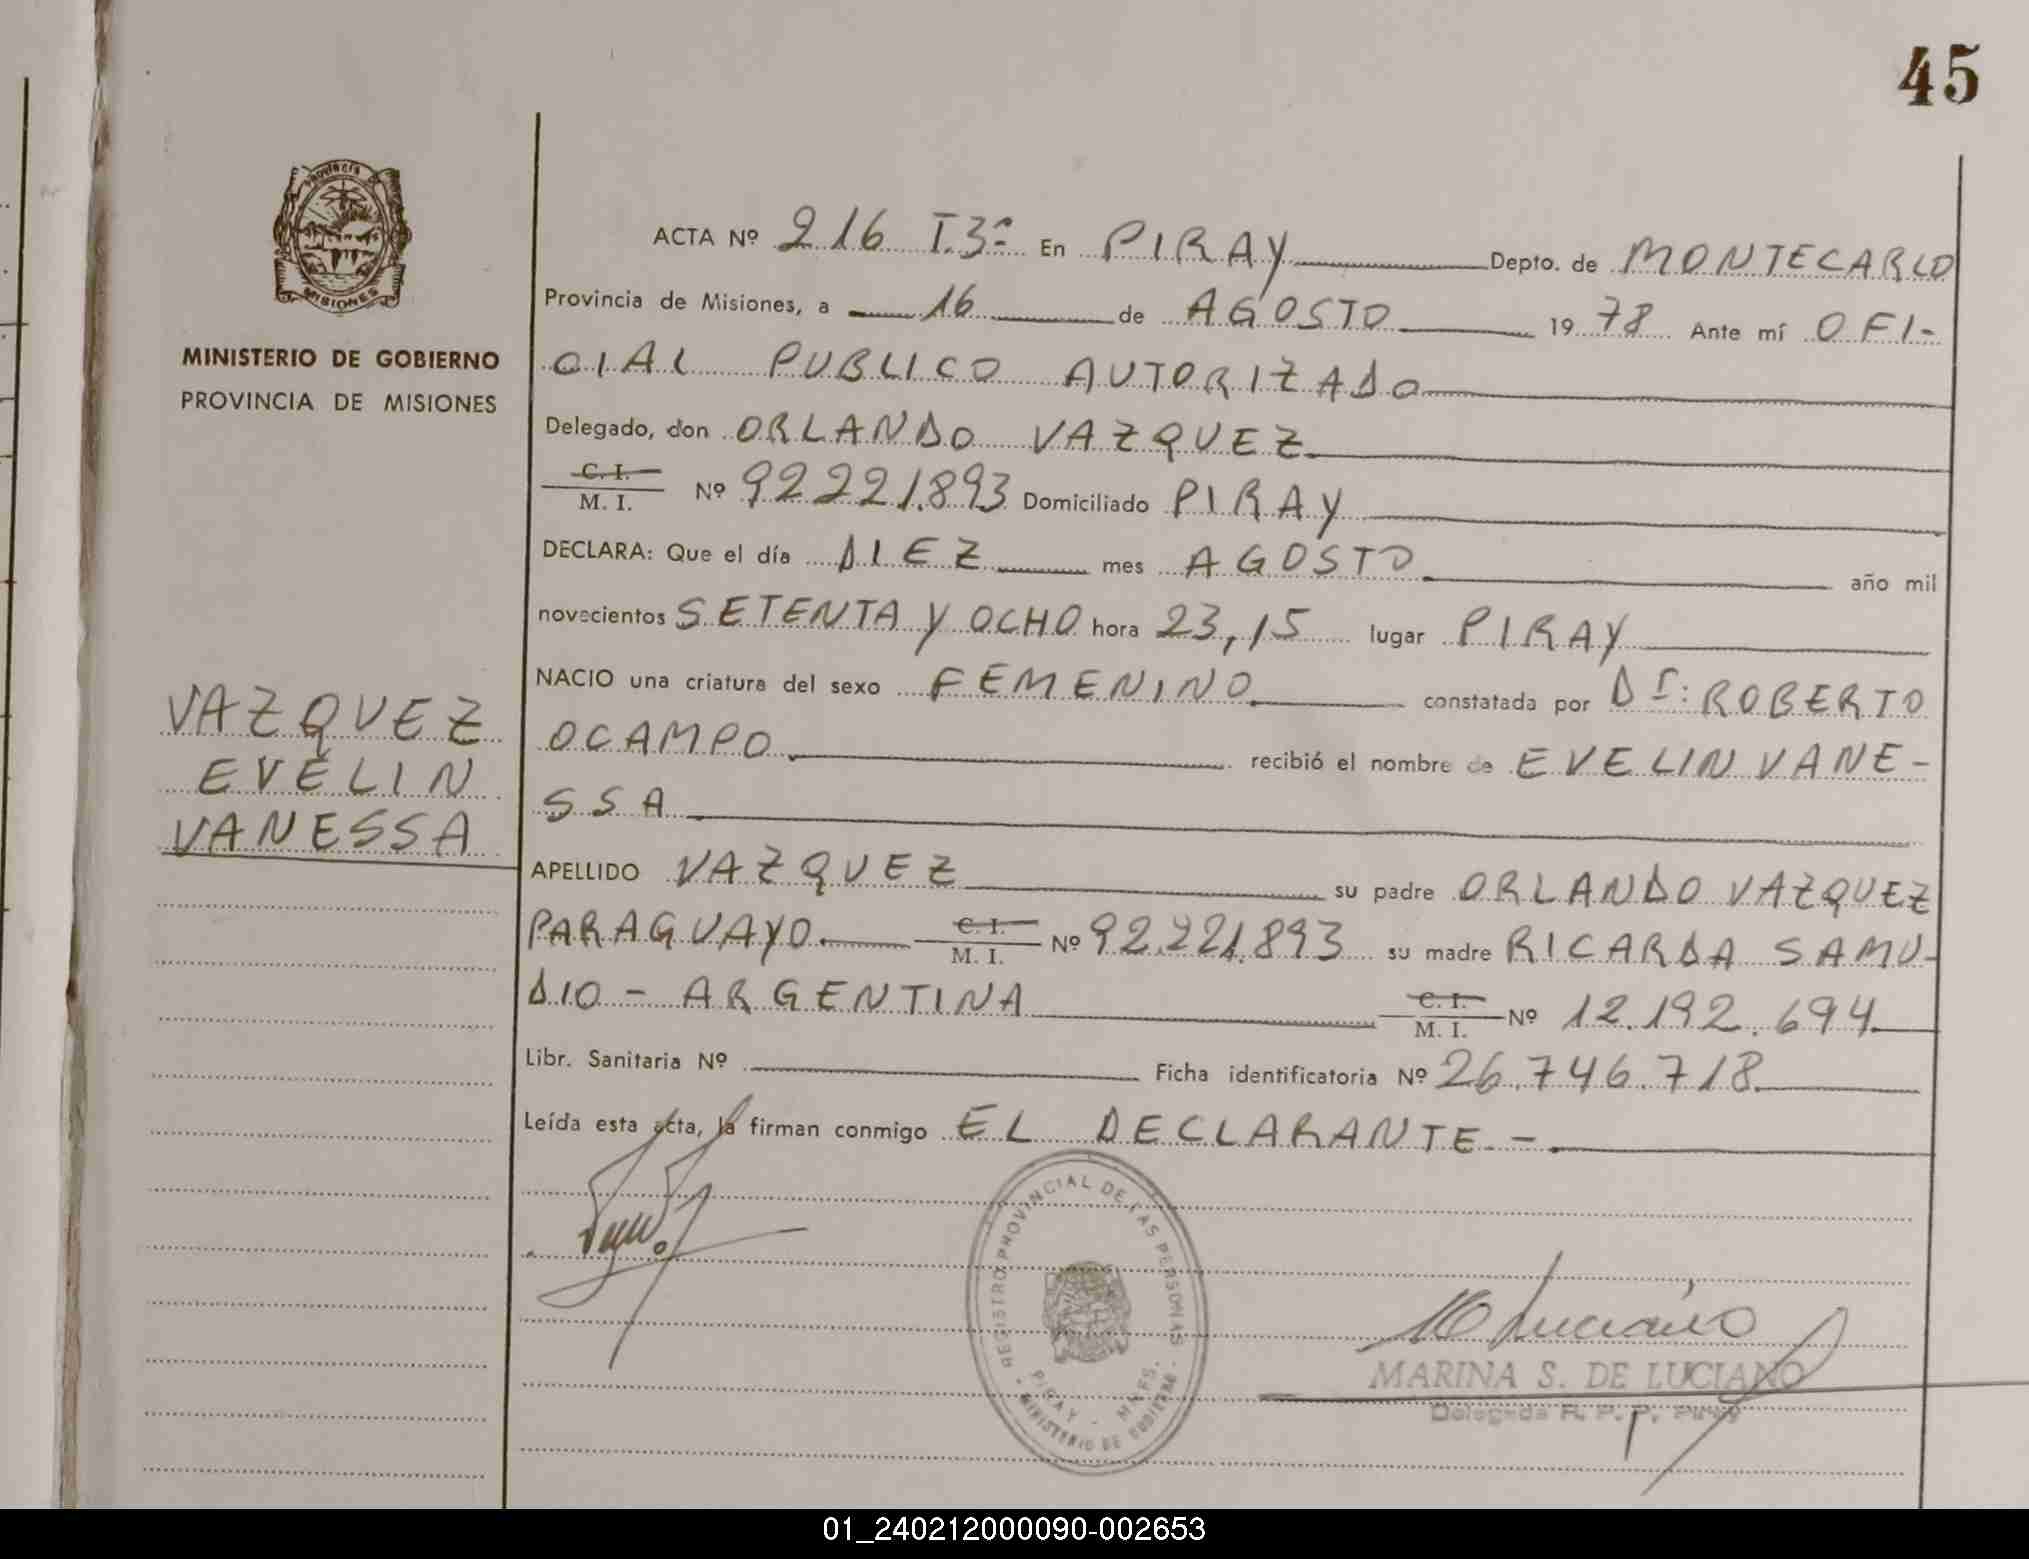 45
Provincia de
MISIONES
MINISTERIO DE GOBIERNO
PROVINCIA DE MISIONES
VAZQUEZ
EVELIN
VANESSA
ACTA Nº 216 T.3º En PIRAY Depto. de MONTECARLO
Provincia de Misiones, a 16 de AGOSTO 1978 Ante mí OFI-
CIAL PUBLICO AUTORIZADO
Delegado, don ORLANDO VAZQUEZ
C. I.
M. I. Nº 92221.893 Domiciliado PIRAY
DECLARA: Que el día DIEZ mes AGOSTO año mil
novecientos SETENTA Y OCHO hora 23,15 lugar PIRAY
NACIO una criatura del sexo FEMENINO constatada por Dr: ROBERTO
OCAMPO recibió el nombre de EVELIN VANE-
SSA
APELLIDO VAZQUEZ su padre ORLANDO VAZQUEZ
PARAGUAYO C. I. M. I. Nº 92.221.893 su madre RICARDA SAMU-
DIO - ARGENTINA C. I. M. I. Nº 12.192.694
Libr. Sanitaria Nº Ficha identificatoria Nº 26.746.718
Leída esta acta, la firman conmigo EL DECLARANTE -
REGISTRO PROVINCIAL DE LAS PERSONAS
PIRAY - MNES.
MINISTERIO DE GOBIERNO
MARINA S. DE LUCIANO
Delegada R. P. P. Piray
01_240212000090-002653